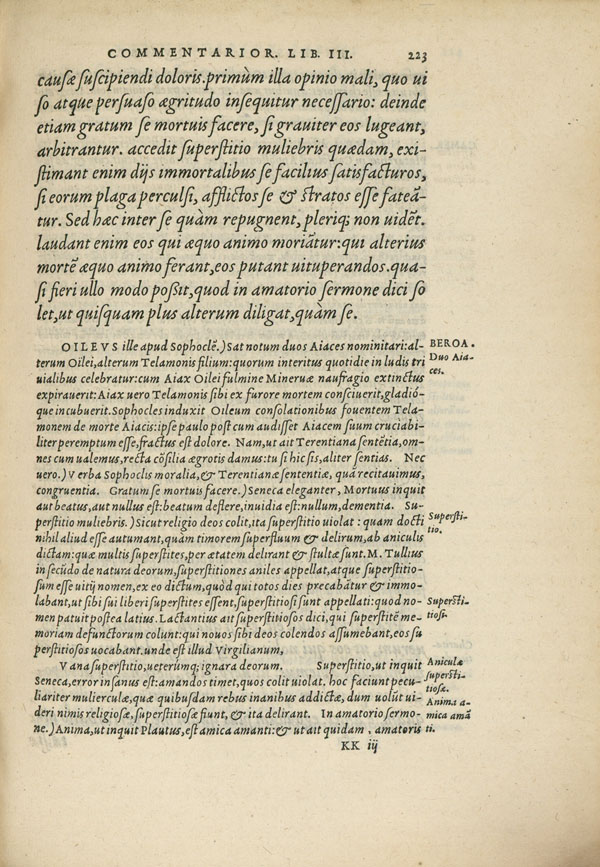 COMMENTARIOR. LIB. III. 223
causæ suscipiendi doloris.primùm illa opinio mali, quo ui
so atque persuaso ægritudo insequitur necessario: deinde
etiam gratum se mortuis facere, si grauiter eos lugeant,
arbitrantur. accedit superstitio muliebris quædam, exi-
stimant enim dijs immortalibus se facilius satisfacturos,
si eorum plaga perculsi, afflictos se & stratos esse fateã-
tur. Sed hæc inter se quàm repugnent, pleriq; non uidẽt.
laudant enim eos qui æquo animo moriãtur: qui alterius
mortẽ æquo animo ferant, eos putant uituperandos. qua-
si fieri ullo modo possit, quod in amatorio sermone dici so
let, ut quisquam plus alterum diligat, quàm se.
OILEVS ille apud Sophoclẽ.) Sat notum duos Aiaces nominitari: al-
BEROA.
terum Oilei, alterum Telamonis filium: quorum interitus quotidie in ludis tri
Duo Aia-
uialibus celebratur: cum Aiax Oilei fulmine Mineruæ naufragio extinctus
ces.
expirauerit: Aiax uero Telamonis sibi ex furore mortem consciuerit, gladió-
que incubuerit. Sophocles induxit Oileum consolationibus fouentem Tela-
monem de morte Aiacis: ipse paulo post cum audisset Aiacem suum cruciabi-
liter peremptum esse, fractus est dolore. Nam, ut ait Terentiana sentẽtia, om-
nes cum ualemus, recta cõsilia ægrotis damus: tu si hic sis, aliter sentias. Nec
uero.) Verba Sophoclis moralia, & Terentianæ sententiæ, quã recitauimus,
congruentia. Gratum se mortuis facere.) Seneca eleganter, Mortuus inquit
aut beatus, aut nullus est: beatum deflere, inuidia est: nullum, dementia. Su-
perstitio muliebris.) Sicut religio deos colit, ita superstitio uiolat: quam docti
Supersti-
tio.
nihil aliud esse autumant, quàm timorem superfluum & delirum, ab aniculis
dictam: quæ multis superstites, per ætatem delirant & stultæ sunt. M. Tullius
in secũdo de natura deorum, superstitiones aniles appellat, atque superstitio-
sum esse uitij nomen, ex eo dictum, quòd qui totos dies precabãtur & immo-
labant, ut sibi sui liberi superstites essent, superstitiosi sunt appellati: quod no-
Supersti-
men patuit postea latius. Lactantius ait superstitiosos dici, qui superstitẽ me-
tiosi.
moriam defunctorum colunt: qui nouos sibi deos colendos assumebant, eos su
perstitiosos uocabant. unde est illud Virgilianum,
Vana superstitio, ueterumq; ignara deorum. Superstitio, ut inquit
Aniculæ
Seneca, error insanus est: amandos timet, quos colit uiolat. hoc faciunt pecu-
supersti-
liariter mulierculæ, quæ quibusdam rebus inanibus addictæ, dum uolũt ui-
tiosæ.
deri nimis religiosæ, superstitiosæ fiunt, & ita delirant. In amatorio sermo-
Anima a-
mica amã
ne.) Anima, ut inquit Plautus, est amica amanti: & ut ait quidam, amatoris
ti.
KK iij